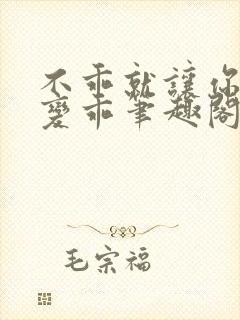 不乖就讓你
變乖筆趣閣
毛宗福